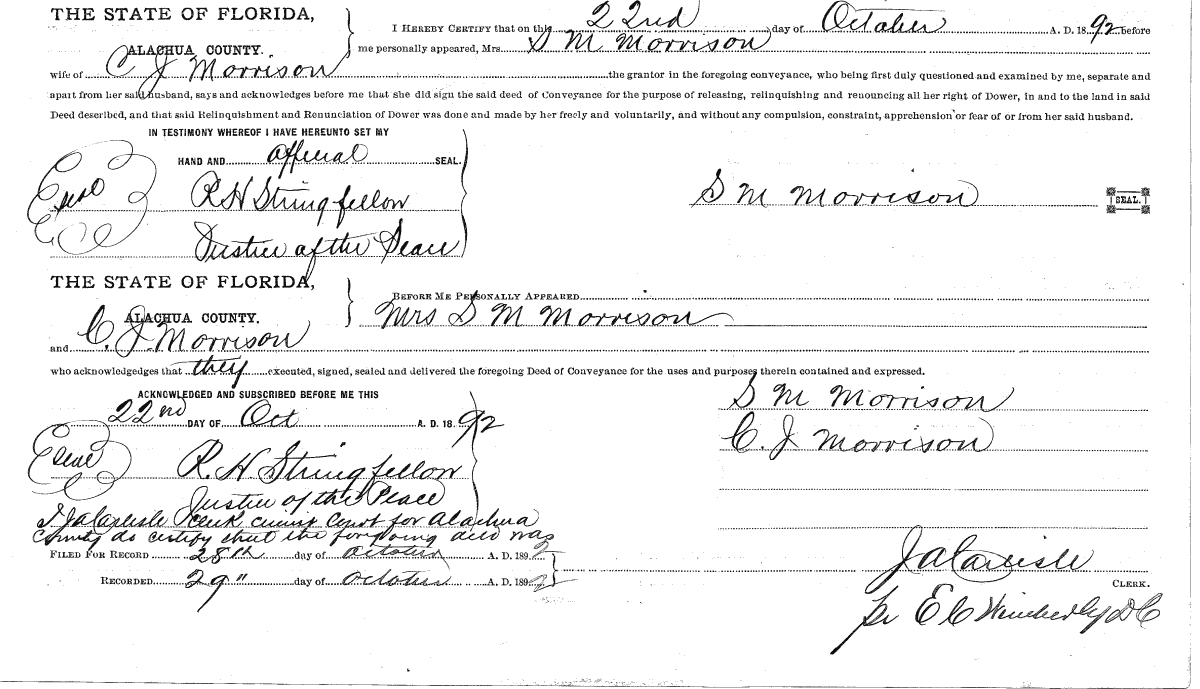 THE STATE OF FLORIDA,
ALACHUA COUNTY.
I HEREBY CERTIFY that on this 22nd day of October A. D. 1892 before
me personally appeared, Mrs. S M Morrison
wife of C J Morrison the grantor in the foregoing conveyance, who being first duly questioned and examined by me, separate and
apart from her said husband, says and acknowledges before me that she did sign the said deed of Conveyance for the purpose of releasing, relinquishing and renouncing all her right of Dower, in and to the land in said
Deed described, and that said Relinquishment and Renunciation of Dower was done and made by her freely and voluntarily, and without any compulsion, constraint, apprehension or fear of or from her said husband.
IN TESTIMONY WHEREOF I HAVE HEREUNTO SET MY
HAND AND official SEAL.
Seal
R H Stringfellow
S M Morrison SEAL.
Justice of the Peace
THE STATE OF FLORIDA,
ALACHUA COUNTY.
BEFORE ME PERSONALLY APPEARED
Mrs S M Morrison
and C. J. Morrison
who acknowledgedges that they executed, signed, sealed and delivered the foregoing Deed of Conveyance for the uses and purposes therein contained and expressed.
ACKNOWLEDGED AND SUBSCRIBED BEFORE ME THIS
22nd DAY OF Oct A. D. 1892
S M Morrison
C. J Morrison
Seal
R. H Stringfellow
Justice of the Peace
I J A Carlisle Clerk Circuit Court for Alachua
County do certify that the foregoing deed was
FILED FOR RECORD 28th day of October A. D. 1892
RECORDED 29" day of October A. D. 1892
J A Carlisle
CLERK.
pr E C Wimberly D C